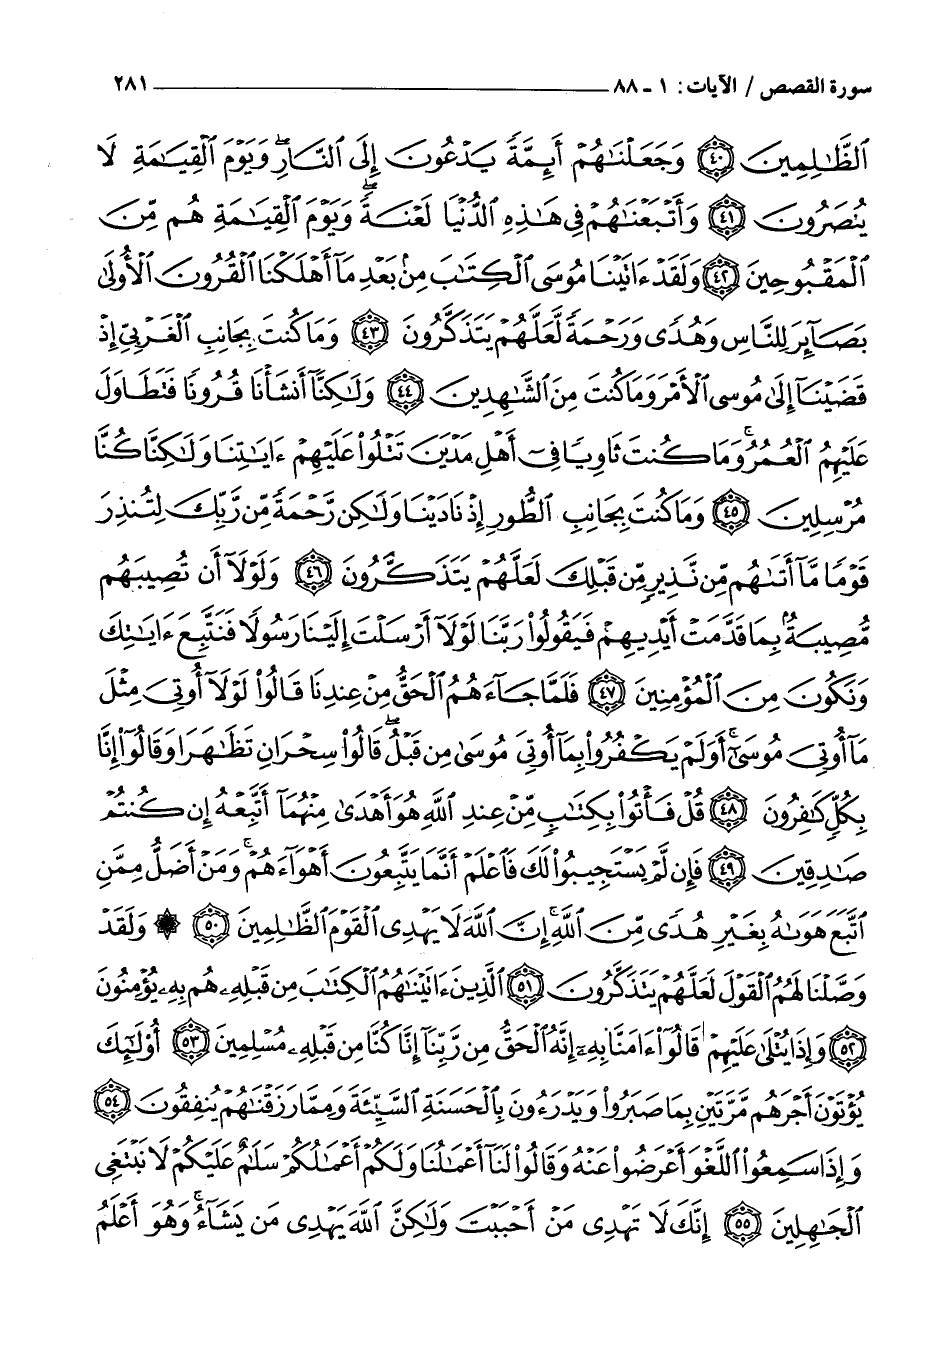 سورة القصص / الآيات : ١ - ٨٨ ٢٨١
ٱلظَّٰلِمِينَ ﴿٤٠﴾ وَجَعَلْنَٰهُمْ أَئِمَّةً يَدْعُونَ إِلَى ٱلنَّارِ ۖ وَيَوْمَ ٱلْقِيَٰمَةِ لَا
يُنصَرُونَ ﴿٤١﴾ وَأَتْبَعْنَٰهُمْ فِى هَٰذِهِ ٱلدُّنْيَا لَعْنَةً ۖ وَيَوْمَ ٱلْقِيَٰمَةِ هُم مِّنَ
ٱلْمَقْبُوحِينَ ﴿٤٢﴾ وَلَقَدْ ءَاتَيْنَا مُوسَى ٱلْكِتَٰبَ مِنۢ بَعْدِ مَآ أَهْلَكْنَا ٱلْقُرُونَ ٱلْأُولَىٰ
بَصَآئِرَ لِلنَّاسِ وَهُدًى وَرَحْمَةً لَّعَلَّهُمْ يَتَذَكَّرُونَ ﴿٤٣﴾ وَمَا كُنتَ بِجَانِبِ ٱلْغَرْبِىِّ إِذْ
قَضَيْنَآ إِلَىٰ مُوسَى ٱلْأَمْرَ وَمَا كُنتَ مِنَ ٱلشَّٰهِدِينَ ﴿٤٤﴾ وَلَٰكِنَّآ أَنشَأْنَا قُرُونًا فَتَطَاوَلَ
عَلَيْهِمُ ٱلْعُمُرُ ۚ وَمَا كُنتَ ثَاوِيًا فِىٓ أَهْلِ مَدْيَنَ تَتْلُوا۟ عَلَيْهِمْ ءَايَٰتِنَا وَلَٰكِنَّا كُنَّا
مُرْسِلِينَ ﴿٤٥﴾ وَمَا كُنتَ بِجَانِبِ ٱلطُّورِ إِذْ نَادَيْنَا وَلَٰكِن رَّحْمَةً مِّن رَّبِّكَ لِتُنذِرَ
قَوْمًا مَّآ أَتَىٰهُم مِّن نَّذِيرٍ مِّن قَبْلِكَ لَعَلَّهُمْ يَتَذَكَّرُونَ ﴿٤٦﴾ وَلَوْلَآ أَن تُصِيبَهُم
مُّصِيبَةٌۢ بِمَا قَدَّمَتْ أَيْدِيهِمْ فَيَقُولُوا۟ رَبَّنَا لَوْلَآ أَرْسَلْتَ إِلَيْنَا رَسُولًا فَنَتَّبِعَ ءَايَٰتِكَ
وَنَكُونَ مِنَ ٱلْمُؤْمِنِينَ ﴿٤٧﴾ فَلَمَّا جَآءَهُمُ ٱلْحَقُّ مِنْ عِندِنَا قَالُوا۟ لَوْلَآ أُوتِىَ مِثْلَ
مَآ أُوتِىَ مُوسَىٰٓ ۚ أَوَلَمْ يَكْفُرُوا۟ بِمَآ أُوتِىَ مُوسَىٰ مِن قَبْلُ ۖ قَالُوا۟ سِحْرَانِ تَظَٰهَرَا وَقَالُوٓا۟ إِنَّا
بِكُلٍّ كَٰفِرُونَ ﴿٤٨﴾ قُلْ فَأْتُوا۟ بِكِتَٰبٍ مِّنْ عِندِ ٱللَّهِ هُوَ أَهْدَىٰ مِنْهُمَآ أَتَّبِعْهُ إِن كُنتُمْ
صَٰدِقِينَ ﴿٤٩﴾ فَإِن لَّمْ يَسْتَجِيبُوا۟ لَكَ فَٱعْلَمْ أَنَّمَا يَتَّبِعُونَ أَهْوَآءَهُمْ ۚ وَمَنْ أَضَلُّ مِمَّنِ
ٱتَّبَعَ هَوَىٰهُ بِغَيْرِ هُدًى مِّنَ ٱللَّهِ ۚ إِنَّ ٱللَّهَ لَا يَهْدِى ٱلْقَوْمَ ٱلظَّٰلِمِينَ ﴿٥٠﴾ ۞ وَلَقَدْ
وَصَّلْنَا لَهُمُ ٱلْقَوْلَ لَعَلَّهُمْ يَتَذَكَّرُونَ ﴿٥١﴾ ٱلَّذِينَ ءَاتَيْنَٰهُمُ ٱلْكِتَٰبَ مِن قَبْلِهِۦ هُم بِهِۦ يُؤْمِنُونَ
﴿٥٢﴾ وَإِذَا يُتْلَىٰ عَلَيْهِمْ قَالُوٓا۟ ءَامَنَّا بِهِۦٓ إِنَّهُ ٱلْحَقُّ مِن رَّبِّنَآ إِنَّا كُنَّا مِن قَبْلِهِۦ مُسْلِمِينَ ﴿٥٣﴾ أُو۟لَٰٓئِكَ
يُؤْتَوْنَ أَجْرَهُم مَّرَّتَيْنِ بِمَا صَبَرُوا۟ وَيَدْرَءُونَ بِٱلْحَسَنَةِ ٱلسَّيِّئَةَ وَمِمَّا رَزَقْنَٰهُمْ يُنفِقُونَ ﴿٥٤﴾
وَإِذَا سَمِعُوا۟ ٱللَّغْوَ أَعْرَضُوا۟ عَنْهُ وَقَالُوا۟ لَنَآ أَعْمَٰلُنَا وَلَكُمْ أَعْمَٰلُكُمْ سَلَٰمٌ عَلَيْكُمْ لَا نَبْتَغِى
ٱلْجَٰهِلِينَ ﴿٥٥﴾ إِنَّكَ لَا تَهْدِى مَنْ أَحْبَبْتَ وَلَٰكِنَّ ٱللَّهَ يَهْدِى مَن يَشَآءُ ۚ وَهُوَ أَعْلَمُ